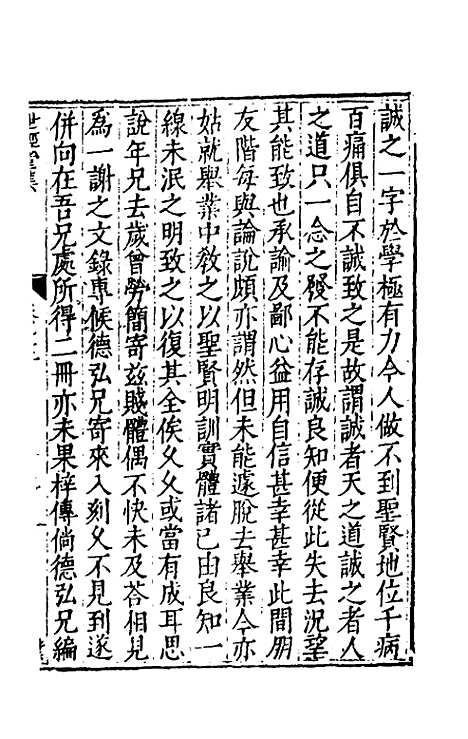 誠之一字於學極有力今人做不到聖賢地位千病
百痛俱自不誠致之是故謂誠者天之道誠之者人
之道只一念之發不能存誠良知便從此失去況望
其能致也承諭及鄙心益用自信甚幸甚幸此間朋
友階每與論說頗亦謂然但未能遽脫去舉業今亦
姑就舉業中敎之以聖賢明訓實體諸已由良知一
線未泯之明致之以復其全俟久久或當有成耳思
說年兄去歲曾勞簡寄兹賤體偶不快未及荅相見
爲一謝之文錄專候德弘兄寄來入刻久不見到遂
併向在吾兄處所得二冊亦未果梓傳倘德弘兄編
世經堂集